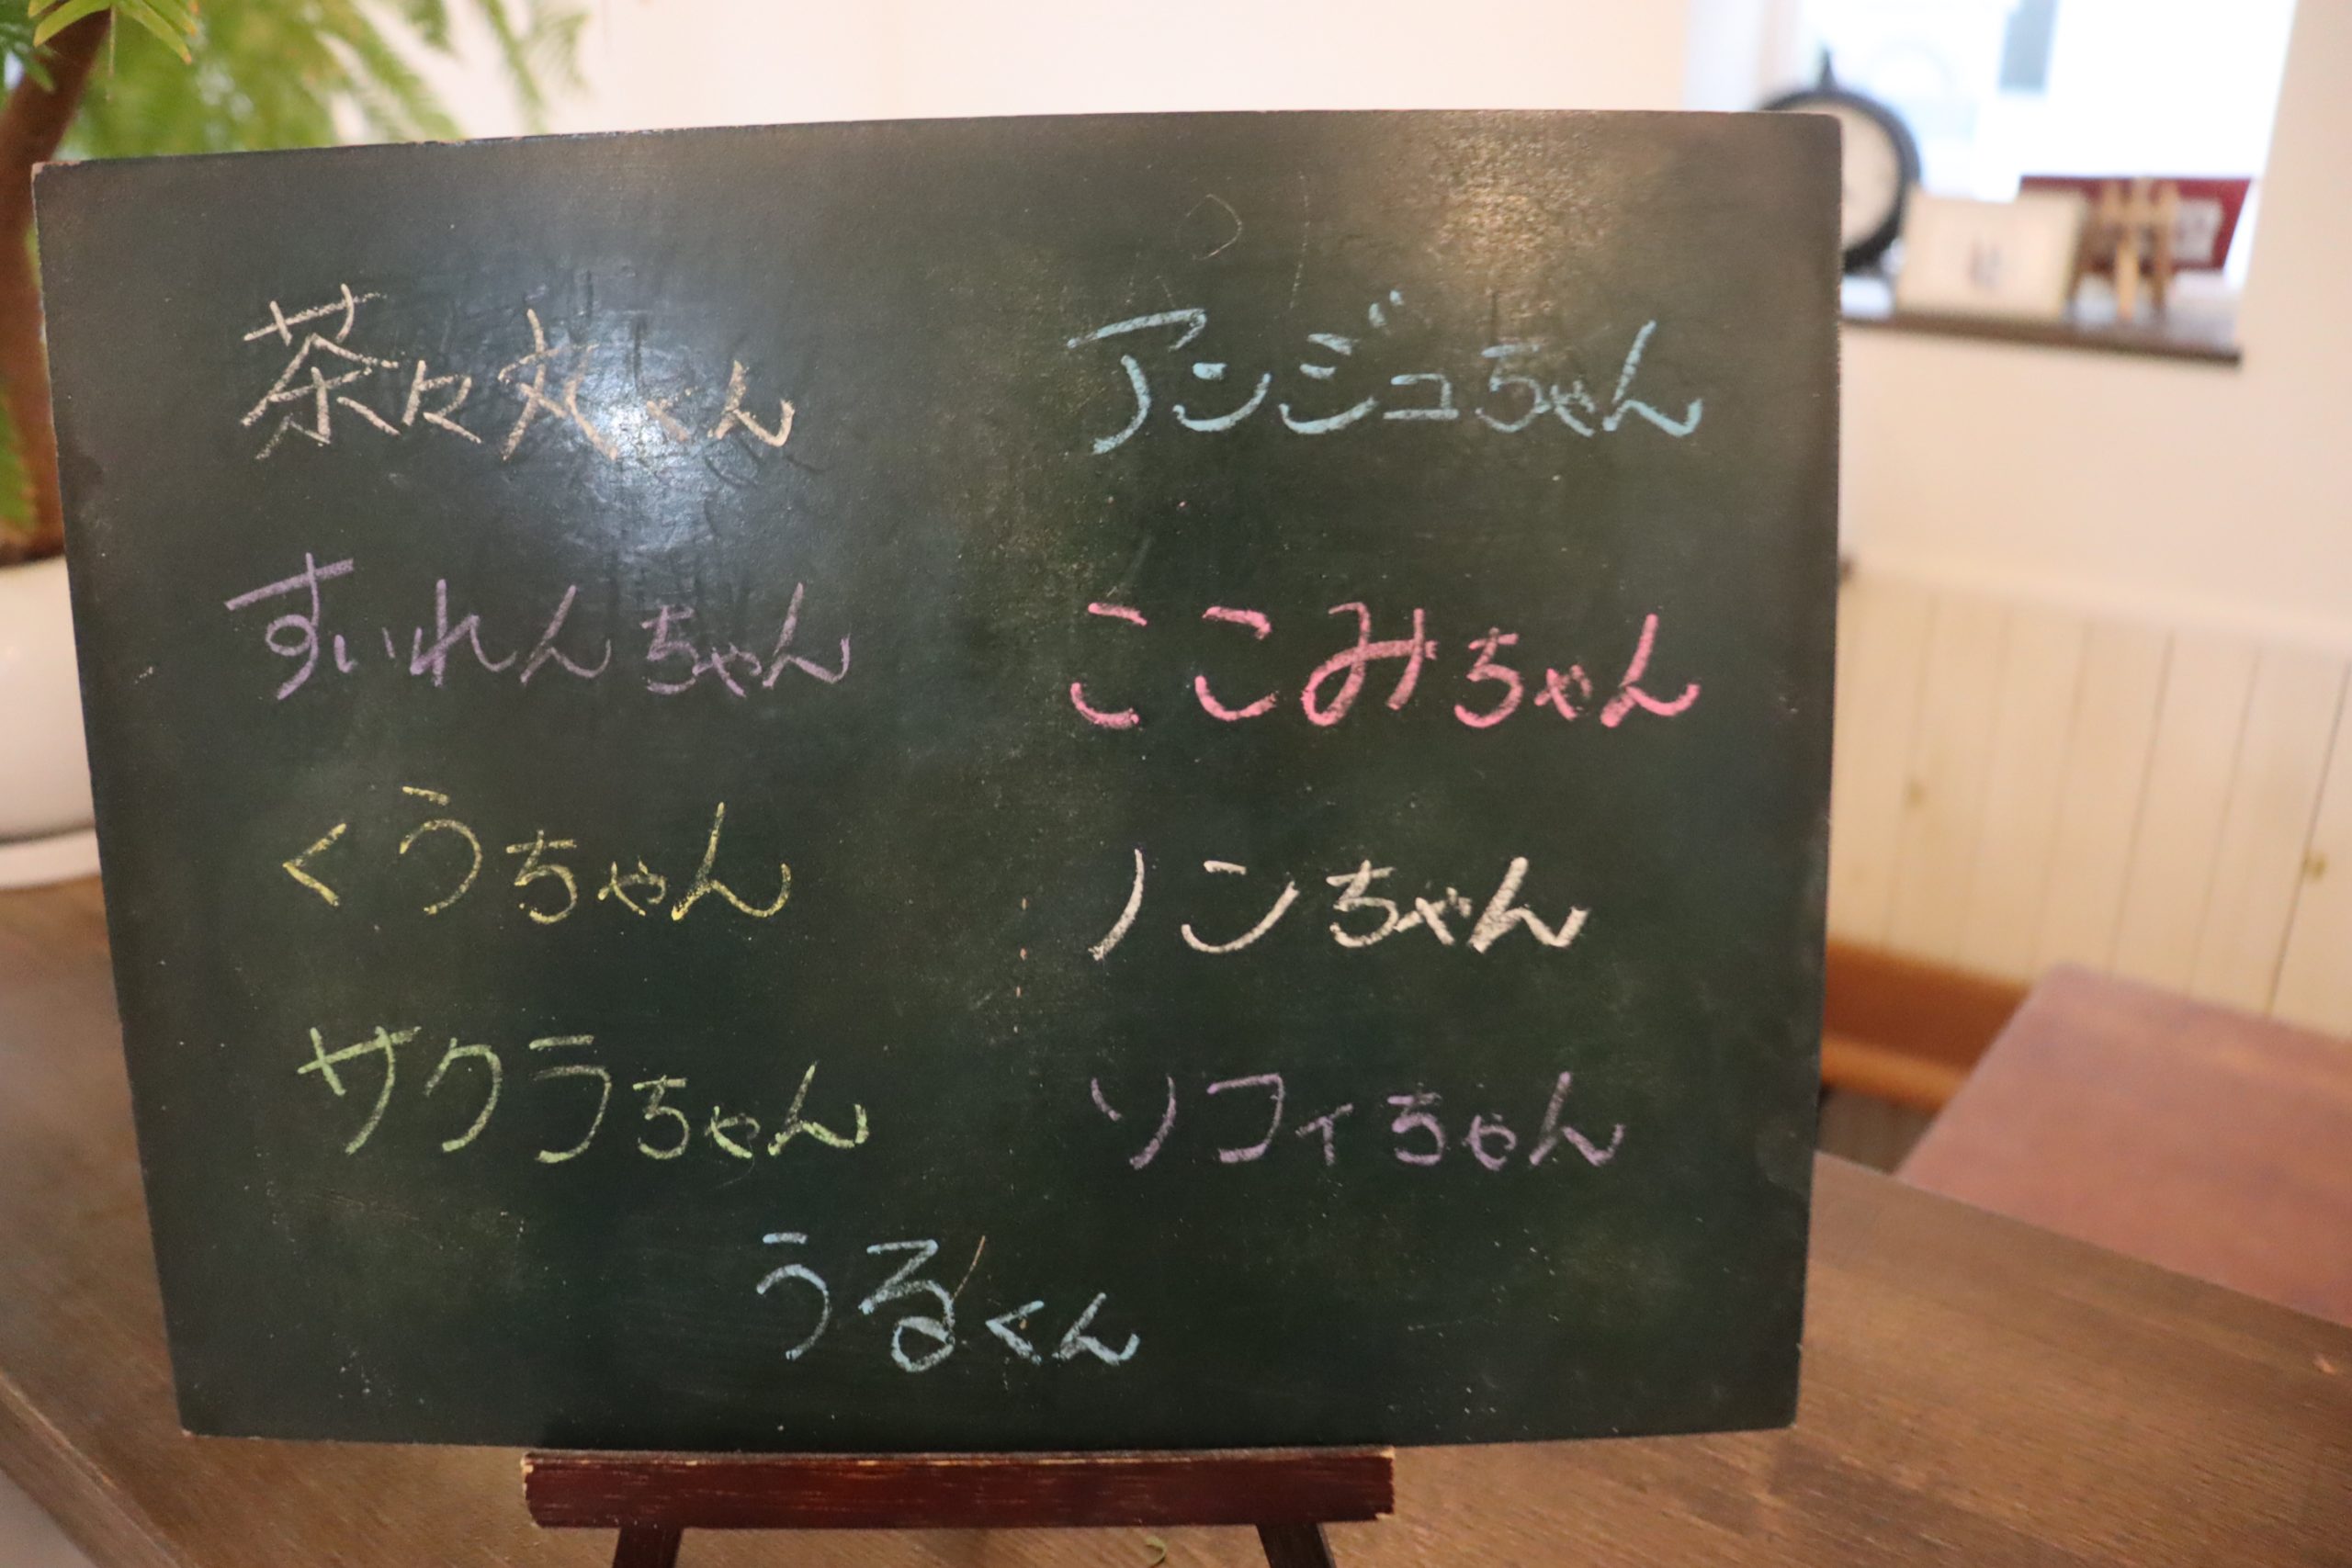 茶々丸くん
アンジュちゃん
すいれんちゃん
ここみちゃん
くうちゃん
ノンちゃん
サクラちゃん
ソフィちゃん
うるくん